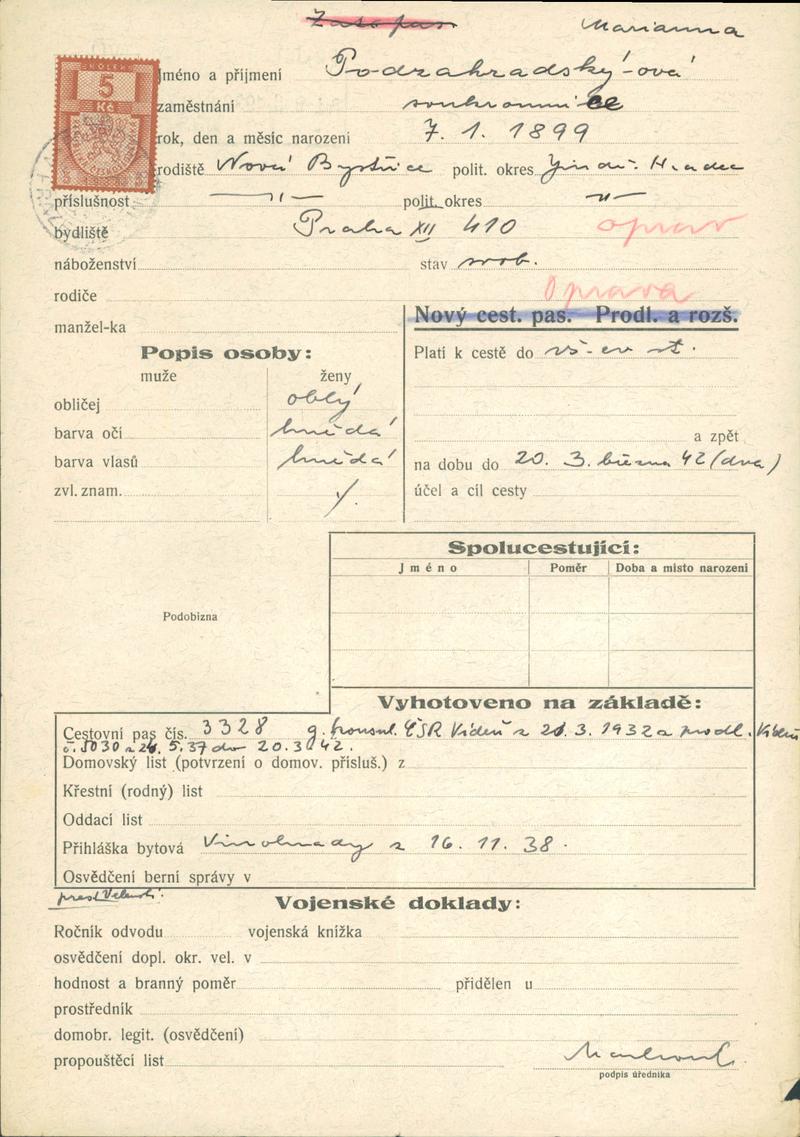 Zatopas Marianna
KOLEK
5
Kč
Jméno a příjmení Podzahradský-ová
zaměstnání soukromnice
rok, den a měsíc narození 7. 1. 1899
rodiště Nová Bystřice polit. okres Jindř. Hradec
příslušnost —"— polit. okres —"—
bydliště Praha XII 410 oprav
náboženství stav svob.
rodiče Oprava
manžel-ka Nový cest. pas. Prodl. a rozš.
Popis osoby: Platí k cestě do vš. ev. st.
muže ženy
obličej oblý
barva očí hnědá a zpět
barva vlasů hnědá na dobu do 20. 3. března 42 (dva)
zvl. znam. účel a cíl cesty
Spolucestující:
Jméno Poměr Doba a místo narození
Podobizna
Vyhotoveno na základě:
Cestovní pas čís. 3328 g. konsul. ČSR Vídeň z 21. 3. 1932 a prodl. Vídeň
č. 5030 z 26. 5. 37 do 20. 3. 42.
Domovský list (potvrzení o domov. přísluš.) z
Křestní (rodný) list
Oddací list
Přihláška bytová Vinohrady z 16. 11. 38.
Osvědčení berní správy v
Vojenské doklady:
Ročník odvodu vojenská knížka
osvědčení dopl. okr. vel. v
hodnost a branný poměr přidělen u
prostředník
domobr. legit. (osvědčení)
propouštěcí list
podpis úředníka